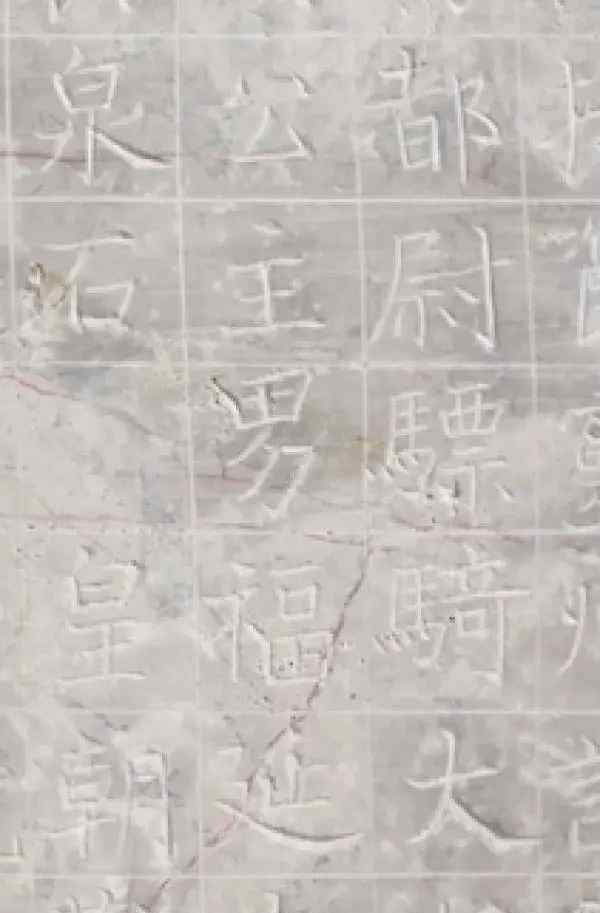 都尉驃騎大
公主男福延
泉石皇朝